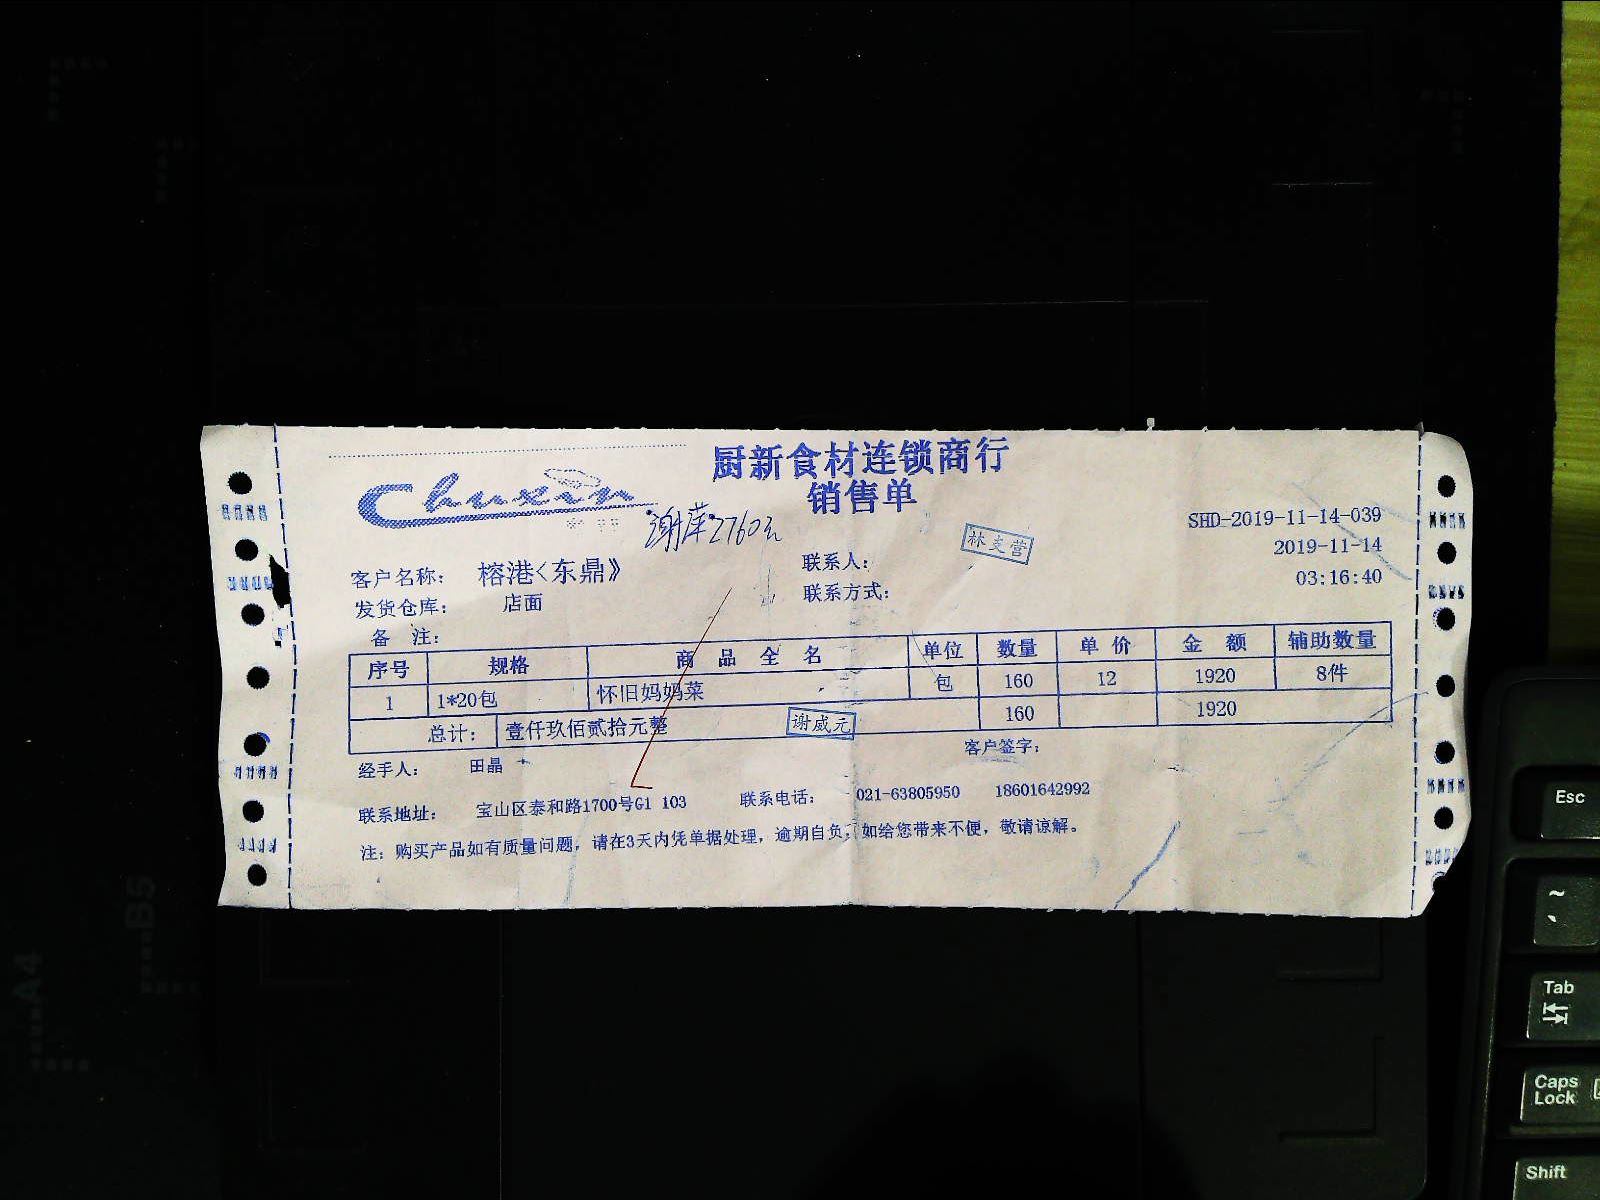 厨新食材连锁商行
Chuxin
销售单
谢萍2760元
林支营
SHD-2019-11-14-039
2019-11-14
03:16:40
客户名称： 榕港<东鼎》 联系人：
发货仓库： 店面 联系方式：
备 注：
序号 规格 商 品 全 名 单位 数量 单 价 金 额 辅助数量
1 1*20包 怀旧妈妈菜 包 160 12 1920 8件
总计： 壹仟玖佰贰拾元整 160 1920
谢威元
经手人： 田晶 客户签字：
联系地址： 宝山区泰和路1700号G1 103 联系电话： 021-63805950 18601642992
注：购买产品如有质量问题，请在3天内凭单据处理，逾期自负，如给您带来不便，敬请谅解。
A4
B5
Esc
~
Tab
Caps Lock
Shift